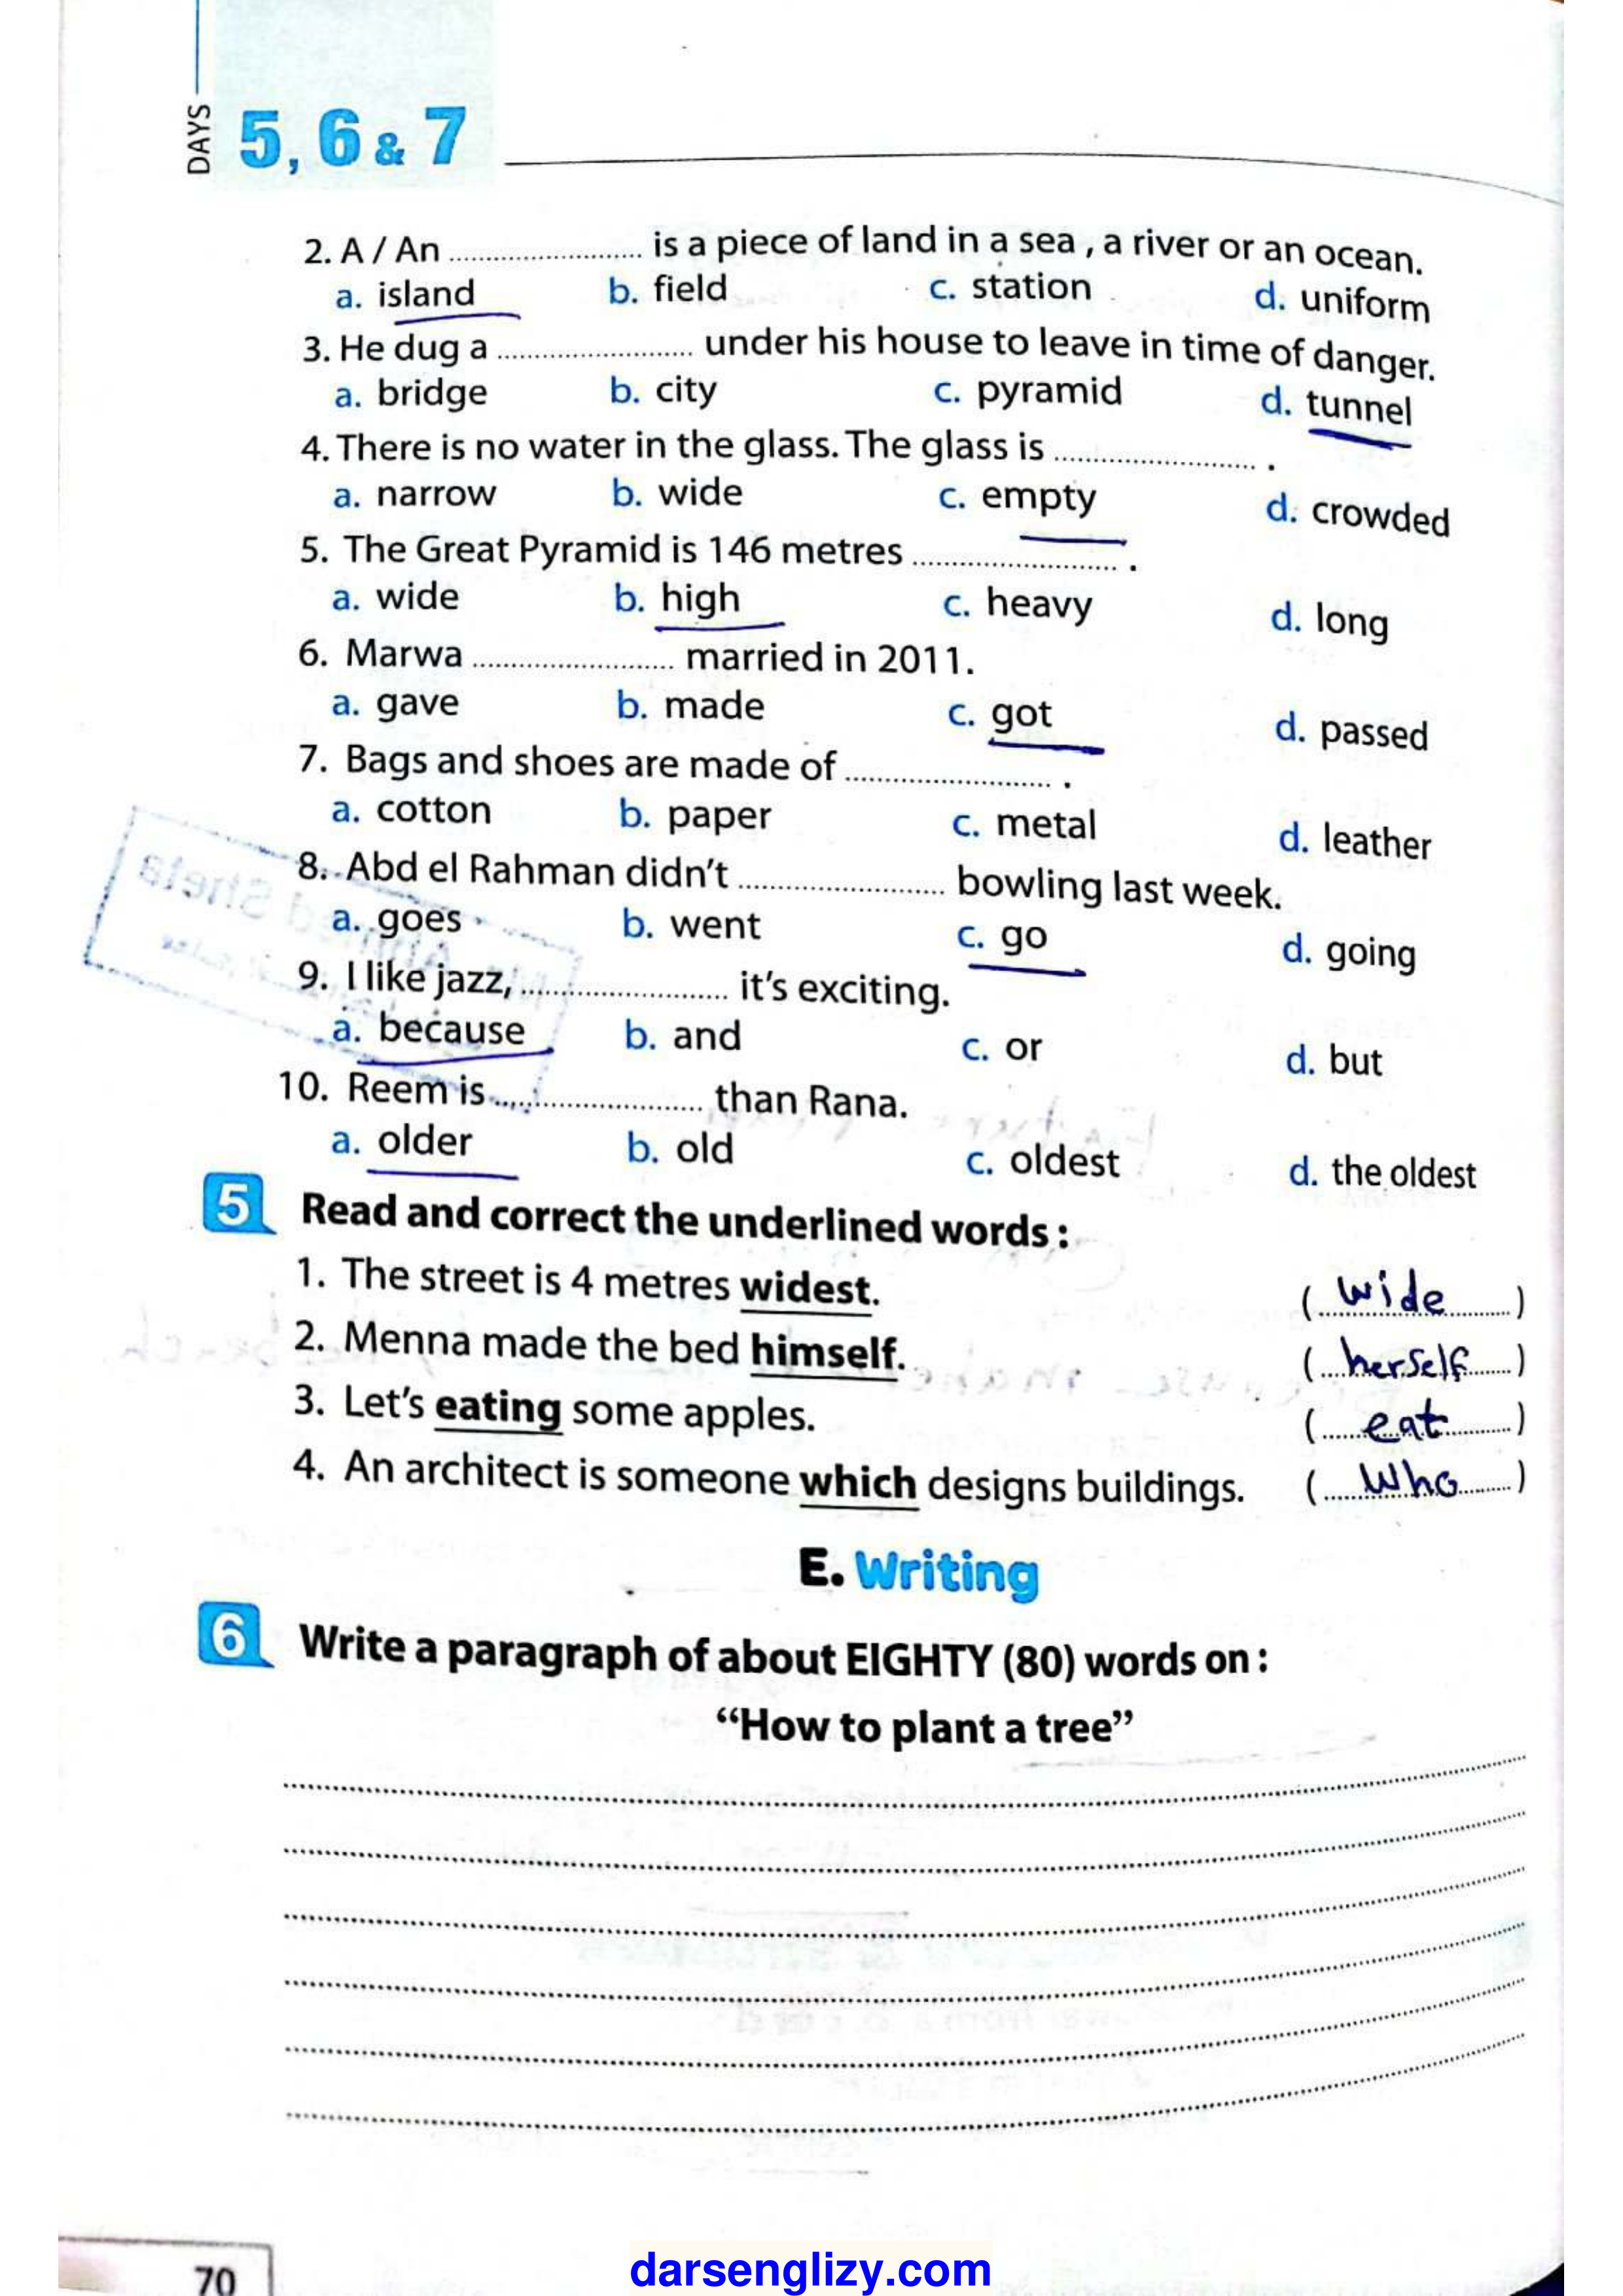 DAYS 5, 6 & 7
2. A / An ........................ is a piece of land in a sea , a river or an ocean.
a. island b. field c. station d. uniform
3. He dug a ........................ under his house to leave in time of danger.
a. bridge b. city c. pyramid d. tunnel
4. There is no water in the glass. The glass is ........................ .
a. narrow b. wide c. empty d. crowded
5. The Great Pyramid is 146 metres ........................ .
a. wide b. high c. heavy d. long
6. Marwa ........................ married in 2011.
a. gave b. made c. got d. passed
7. Bags and shoes are made of ........................ .
a. cotton b. paper c. metal d. leather
8. Abd el Rahman didn't ........................ bowling last week.
a. goes b. went c. go d. going
9. I like jazz, ........................ it's exciting.
a. because b. and c. or d. but
10. Reem is ........................ than Rana.
a. older b. old c. oldest d. the oldest
5 Read and correct the underlined words :
1. The street is 4 metres widest. (wide)
2. Menna made the bed himself. (herself)
3. Let's eating some apples. (eat)
4. An architect is someone which designs buildings. (Who)
E. Writing
6 Write a paragraph of about EIGHTY (80) words on :
“How to plant a tree”
70
darsenglizy.com